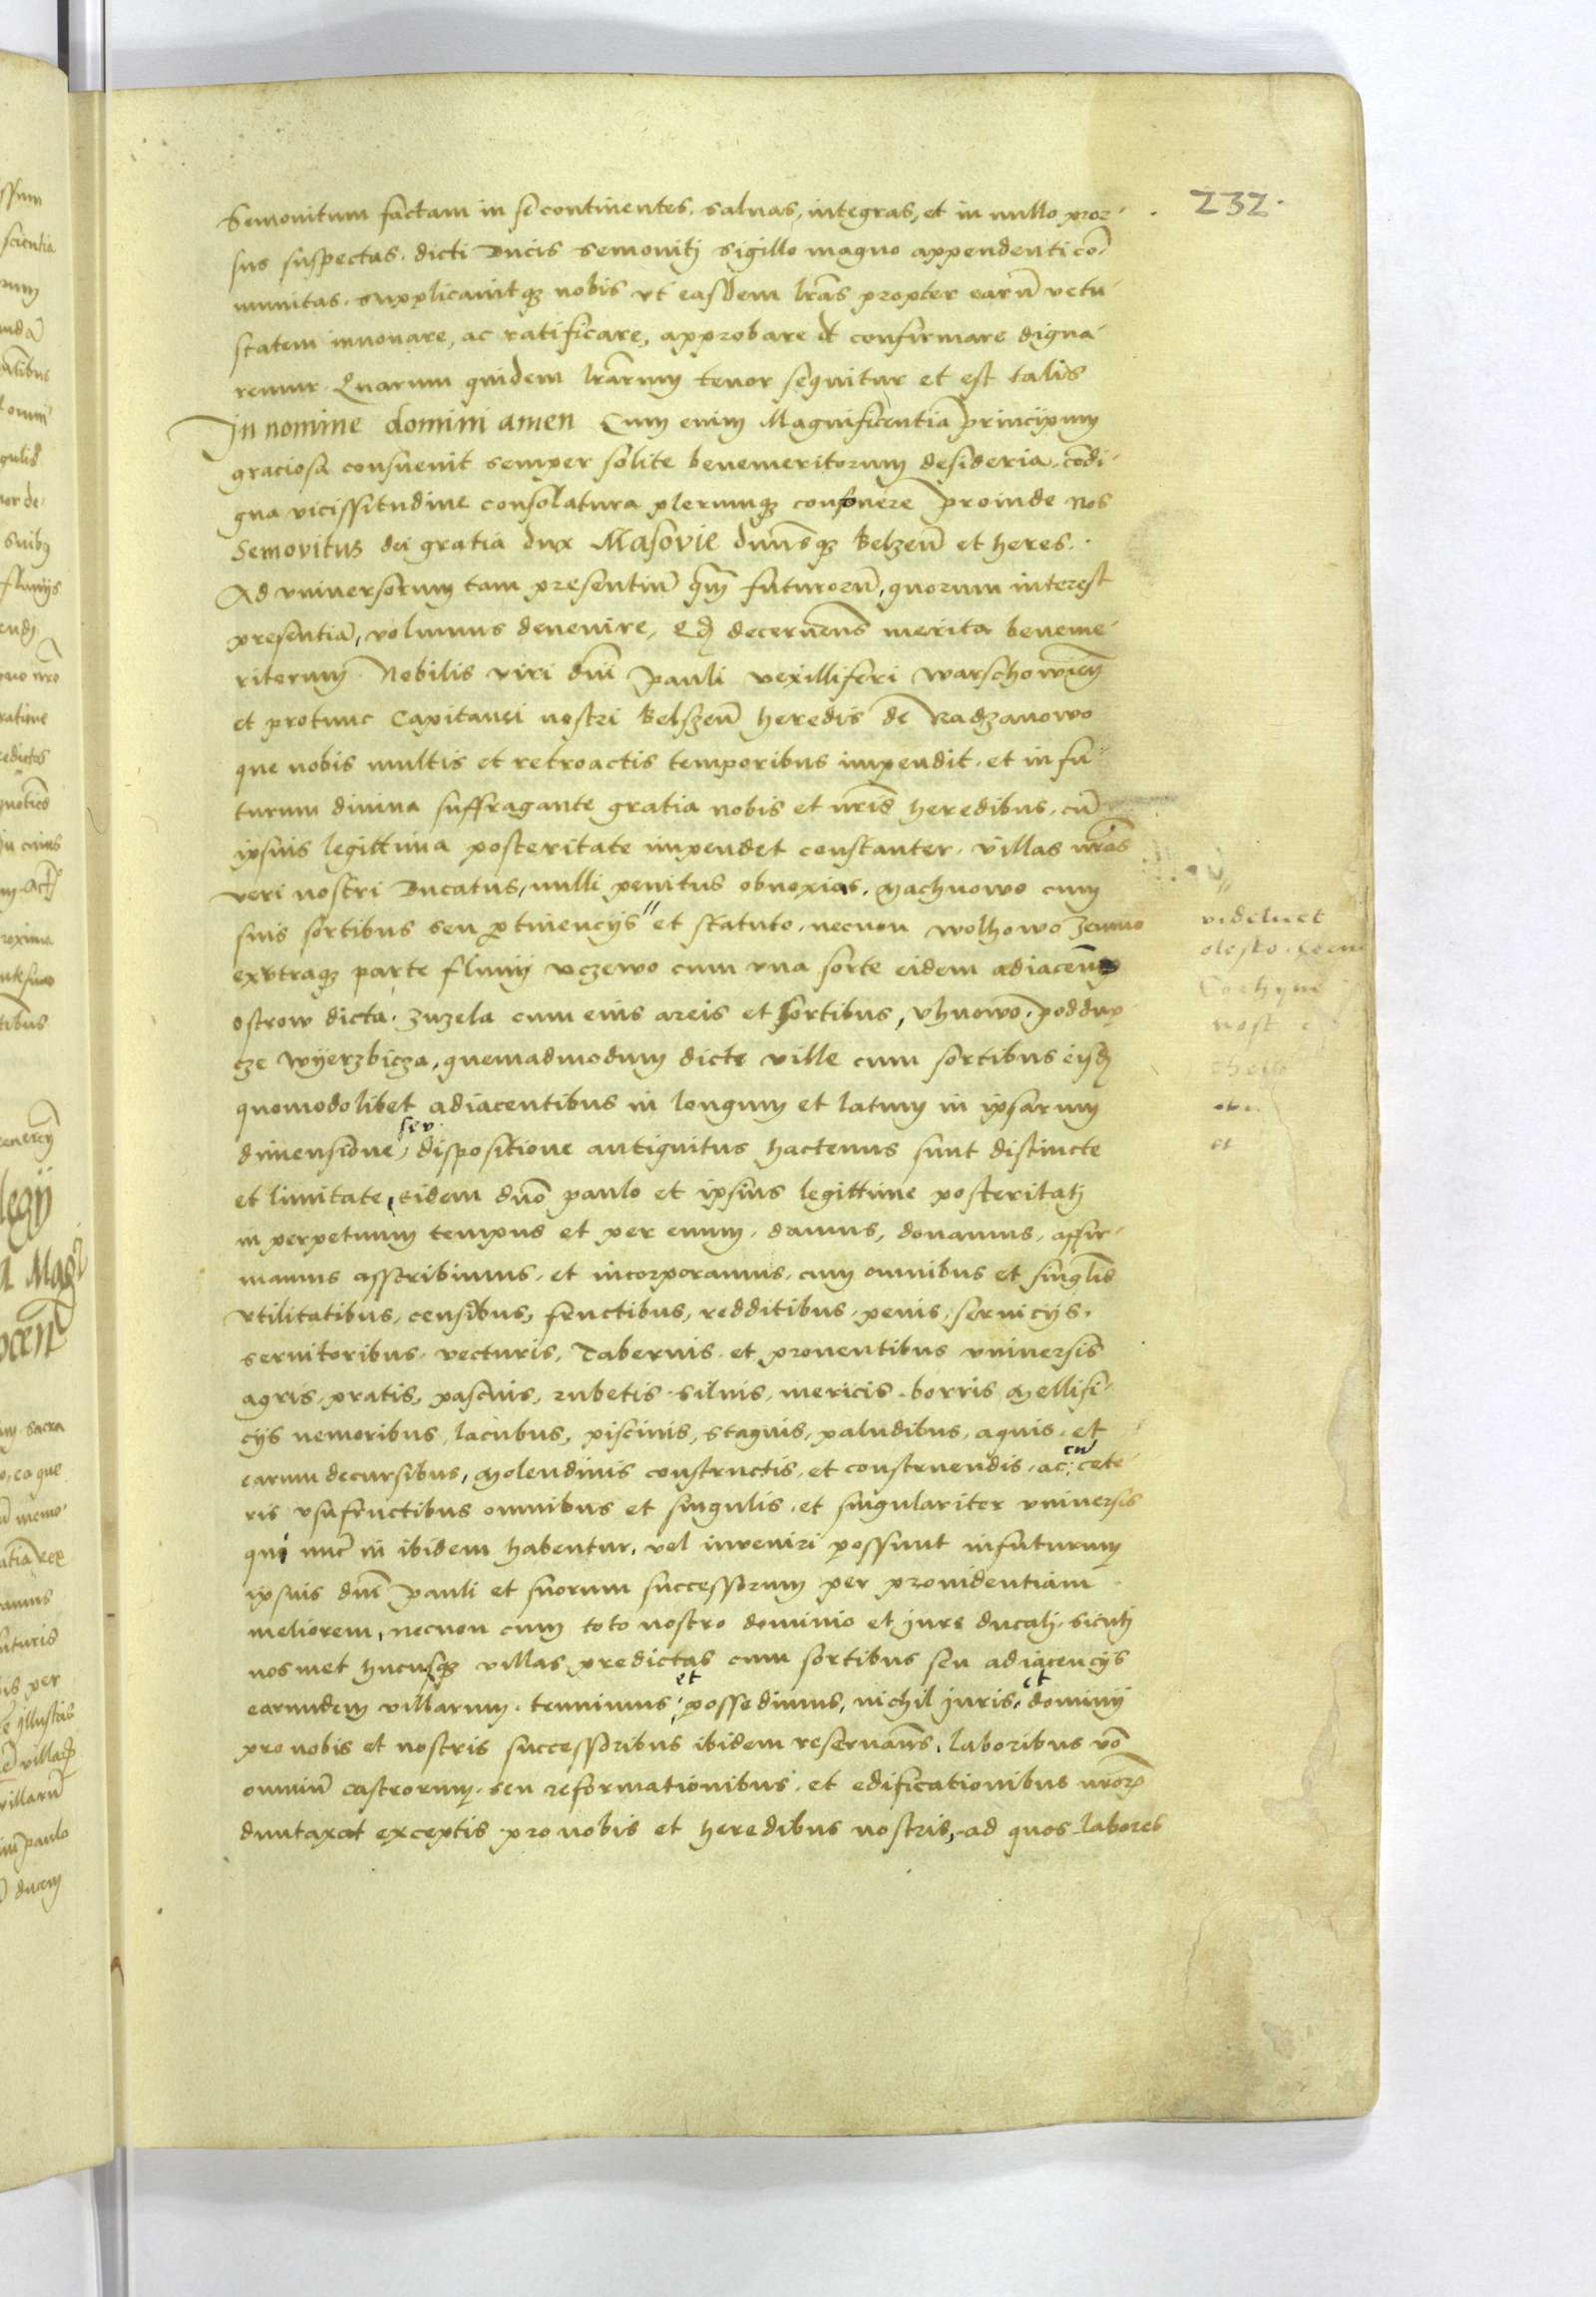 232.
Semouitum factam in se continentes. saluas, integras, et in nullo pror-
sus suspectas. dicti Ducis Semouitj sigillo magno appendenti co͞-
munitas. Supplicauitqꝫ nobis vt easdem lr̃as propter earu͞ vetu-
statem innouare, ac ratificare, approbare et confirmare digna-
remur. Quarum quidem lr̃arum tenor sequitur et est talis
In nomine domini amen Cum enim Magnificentia principum
graciosa consueuit semper solite benemeritorum desideria, co͞di-
gna vicissitudine consolatura plerumqꝫ confouere proinde Nos
Semovitus dei gratia dux Masovie dnũsqꝫ Belzeñ et heres.
Ad vniuersorum tam presentiu͞ qm̃ futuroru͞, quorum interest
presentia͞, volumus deuenire, Qđ decernens̃ merita beneme-
ritorum Nobilis viri dnĩ Pauli vexilliferi warschowieñ
et protunc Capitanei nostri Belszeñ heredis de Radzanowo
que nobis multis et retroactis temporibus impendit. et in fu-
turum diuina suffragante gratia nobis et nr̃is heredibus, cu͞
ipsius legittima posteritate impendet constanter. villas nr̃as
veri nostri Ducatus, nulli penitus obnoxias, Machnowo cum
suis sortibus seu ꝑtinencijs et statuto. necnon wolhowo zenino
exvtraqꝫ parte fluuij vczewo cum vna sorte eidem adiaceñ
ostrow dicta. Zuzela cum eius areis et sortibus, vhnowo. poddup
cze wyerzbicza, quemadmodum dicte ville cum sortibus eijsđ
quomodolibet adiacentibus in longum et latum in ipsarum
dimensione, seu dispositione antiquitus hactenus sunt distincte
et limitate, eidem dnõ paulo et ipsius legittime posteritatj
in perpetuum tempus et per euum. damus, donamus, affir-
mamus asscribimus. et incorporamus. cum omnibus et singl̃is
vtilitatibus, censibus, fructibus, redditibus. penis. seruicijs.
seruitoribus. vecturis, Tabernis. et prouentibus vniuersis
agris, pratis, pascuis, rubetis. siluis, mericis. borris Mellifi-
cijs nemoribus, lacubus, piscinis, stagnis, paludibus, aquis. et
earum decursibus, Molendinis constructis. et construendis. ac cu͞ cete-
ris vsufructibus omnibus et singulis. et singulariter vniuersis
qui nuc̃ in ibidem habentur, vel inveniri possunt infuturum
ipsius dnĩ Pauli et suorum successorum per prouidentiam
meliorem, necnon cum toto nostro dominio et jure ducalj. sicutj
nosmet hucusqꝫ villas predictas cum sortibus seu adiacencijs
earundem villarum. tenuimus, et possedimus, nichil juris, et dominij
pro nobis et nostris successoribus ibidem reseruañs, laboribus vo͞
omniu͞ castrorum. seu reformationibus. et edificationibus nr̃oꝝ
duntaxat exceptis pro nobis et heredibus nostris, ad quos labores
videlicet